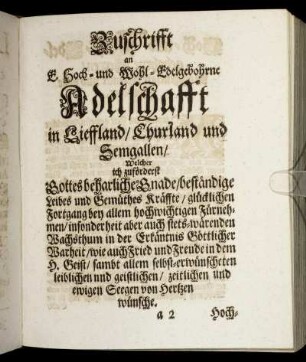 Zuschrifft
an
E. Hoch- und Wohl-Edelgebohrne
Adelschafft
in Lieffland/ Churland und
Semgallen/
Welcher
ich zuförderst
Gottes beharliche Gnade/ beständige
Leibes und Gemüthes Kräffte/ glücklichen
Fortgang bey allem hochwichtigen Fürneh-
men/ insonderheit aber auch stets-wärenden
Wachsthum in der Erkäntnis Göttlicher
Warheit/ wie auch Fried und Freude in dem
H. Geist/ sambt allem selbst-erwünscheten
leiblichen und geistlichen/ zeitlichen und
ewigen Seegen von Hertzen
wünsche.
a 2 Hoch-